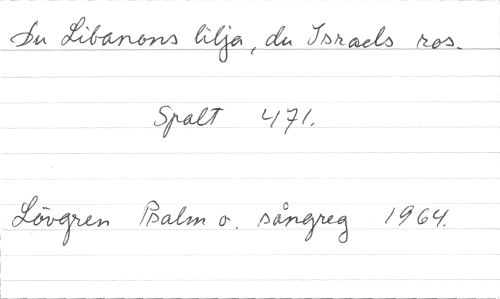 Du Libanons lilja, du Israels ros.
Spalt 471.
Lövgren Psalm o. sångreg 1964.